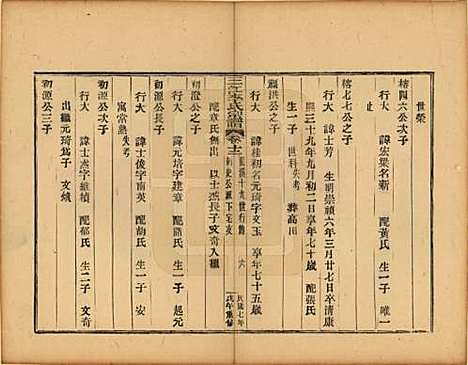 世榮
轄四六公次子
行大 諱宏榘名新 配黃氏 生一子 唯一
止
轄七七公之子
行大 諱士芳 生明崇禎六年三月廿七日卒清康
熙三十九年九月初二日享年七十歲 配張氏
生一子 世科失考 葬高川
福洪公之子
行大 諱桂初名元琦字文玉 享年七十五歲
配章氏無出 以士杰長子文奇入繼
三江李氏宗譜 卷十二 六 民國七年 戊午重修
初澄公之子
行大 諱元培字建章 配蕭氏 生一子 起元
寓常熟失考
初沂公次子
行大 諱士俊字南英 配韵氏 生一子 安
初源公之子
行大 諱士杰字維楨 配郁氏 生二子 文奇
出繼元琦爲子 文斌
初源公三子